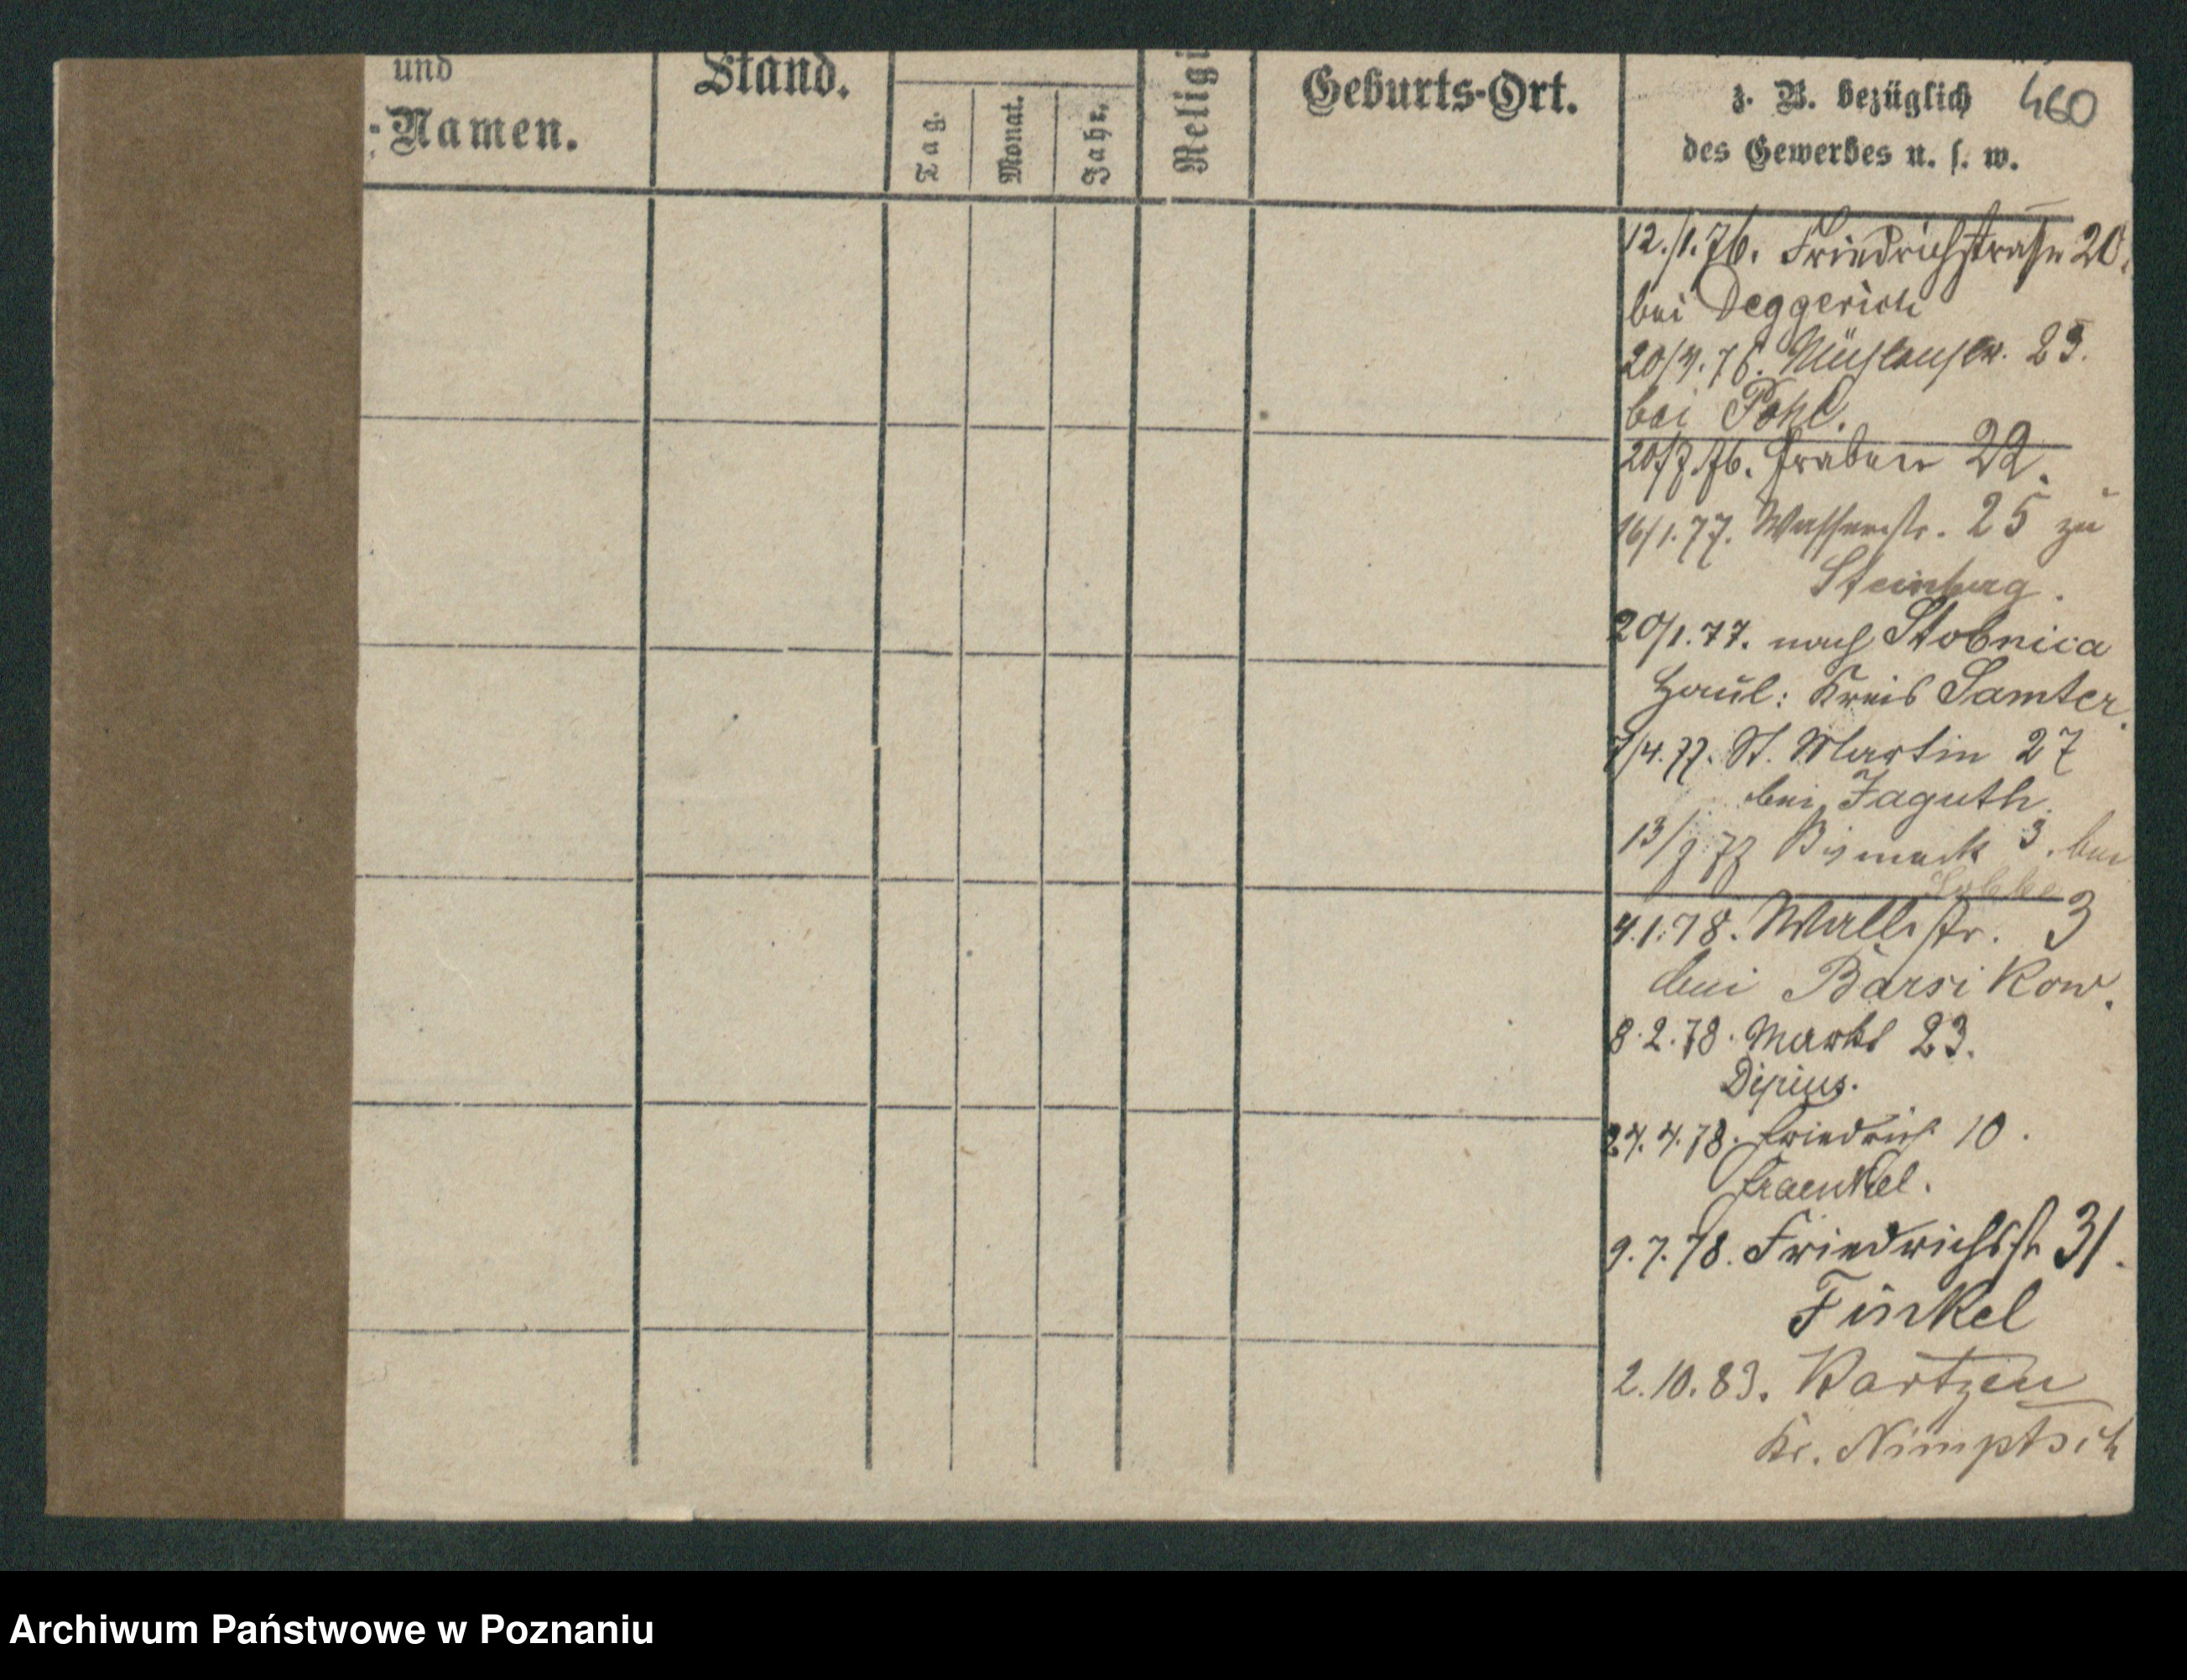 und
Namen.
Stand.
Tag.
Monat.
Jahr.
Religi
Geburts-Ort.
z. B. bezüglich 460
des Gewerbes u. s. w.
12./1.76. Friedrichstraße 20.
bei Deggerich
20/4.76. Mühlenstr. 23.
bei Pohl.
20/7.76. Graben 22.
16/1.77. Wasserstr. 25 zu
Steinberg.
20/1.77. nach Stobnica
Haul: Kreis Samter.
7/4.77. St. Martin 27
bei Jaguth.
13/9 77 Bismack 3. bei
4.1.78. Wallstr. 3
bei Barsikow.
8.2.78. Markt 23.
24.4.78. Friedrich 10.
Fraenkel.
9.7.78. Friedrichsstr 31.
Finkel
2.10.83. Kartzen
Kr. Nimptsch
Archiwum Państwowe w Poznaniu